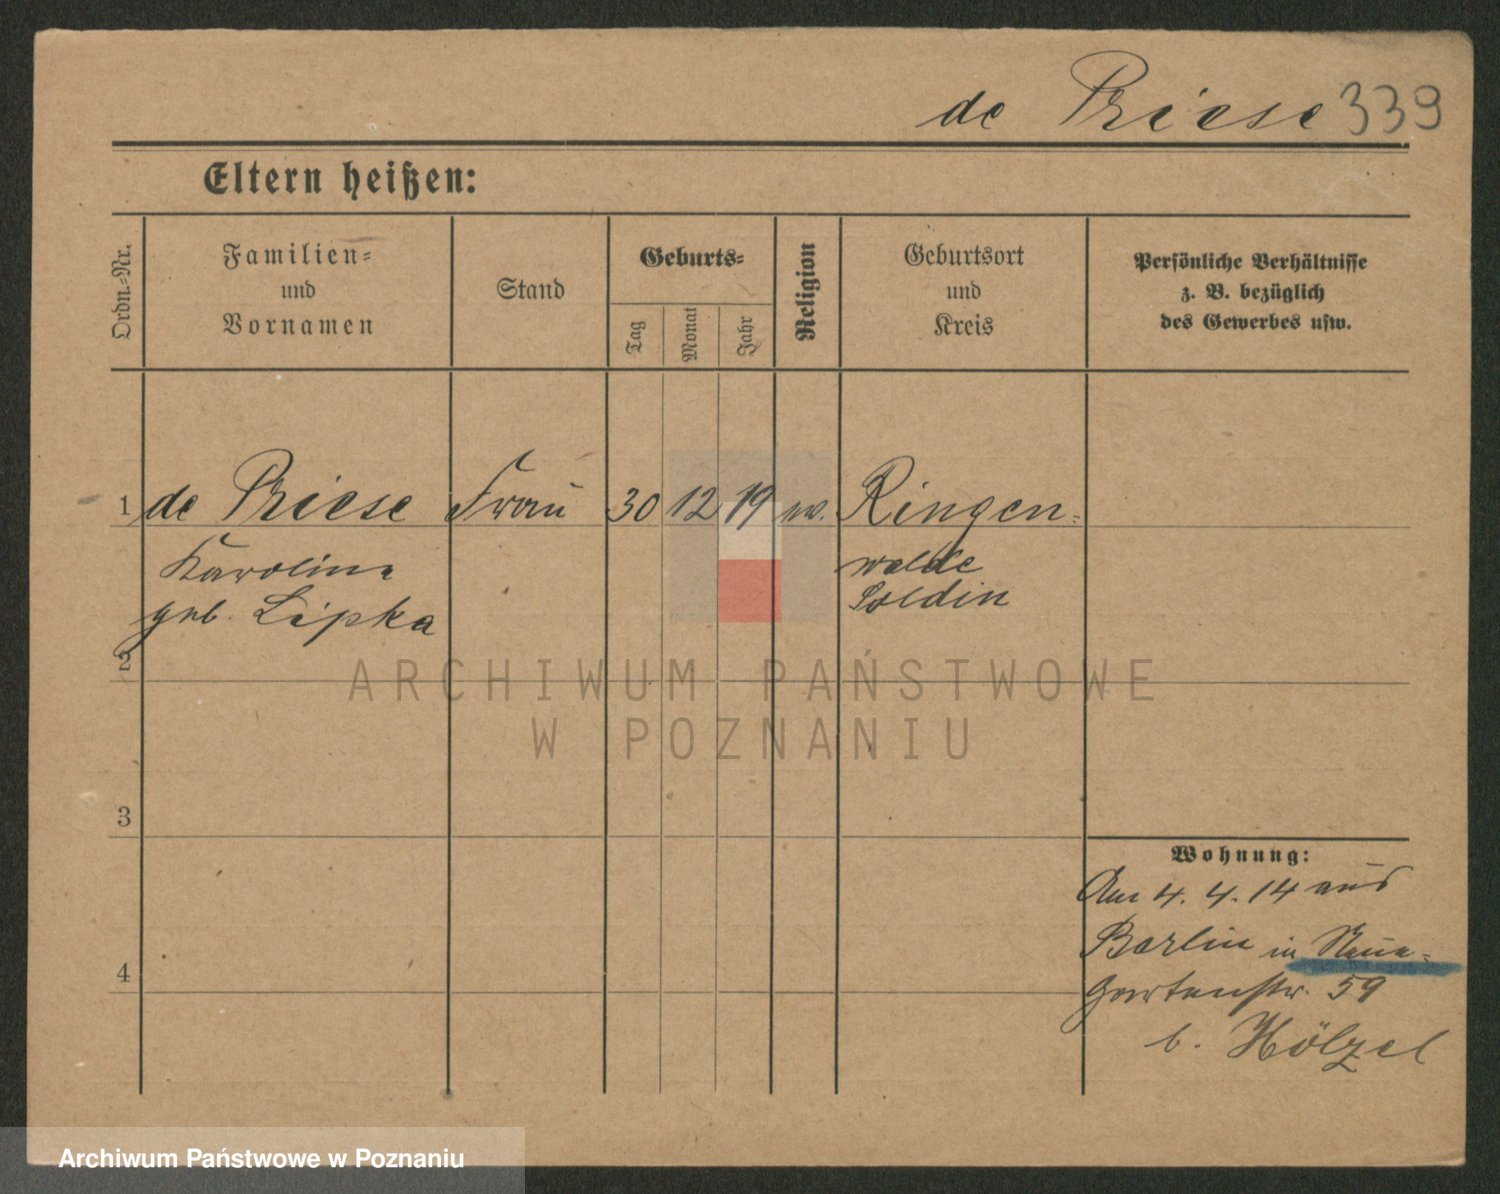 de Priese 339
Eltern heißen:
Ordn.-Nr.
Familien-
und
Vornamen
Stand
Geburts-
Tag
Monat
Jahr
Religion
Geburtsort
und
Kreis
Persönliche Verhältnisse
z. B. bezüglich
des Gewerbes usw.
1 de Priese Frau 30 12 19 Ringen-
Karoline walde
geb. Lipka Soldin
2
ARCHIWUM PAŃSTWOWE
W POZNANIU
3
Wohnung:
Am 4. 4. 14 aus
Berlin in Neue-
4
Gartenstr. 59
b. Hölzel
Archiwum Państwowe w Poznaniu